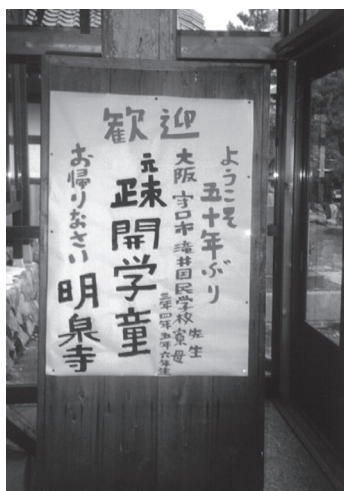 歓迎
ようこそ
五十年ぶり
大阪 守口市 滝井国民学校 先生 寮母
三年 四年 五年 六年生
元疎開学童
お帰りなさい 明泉寺